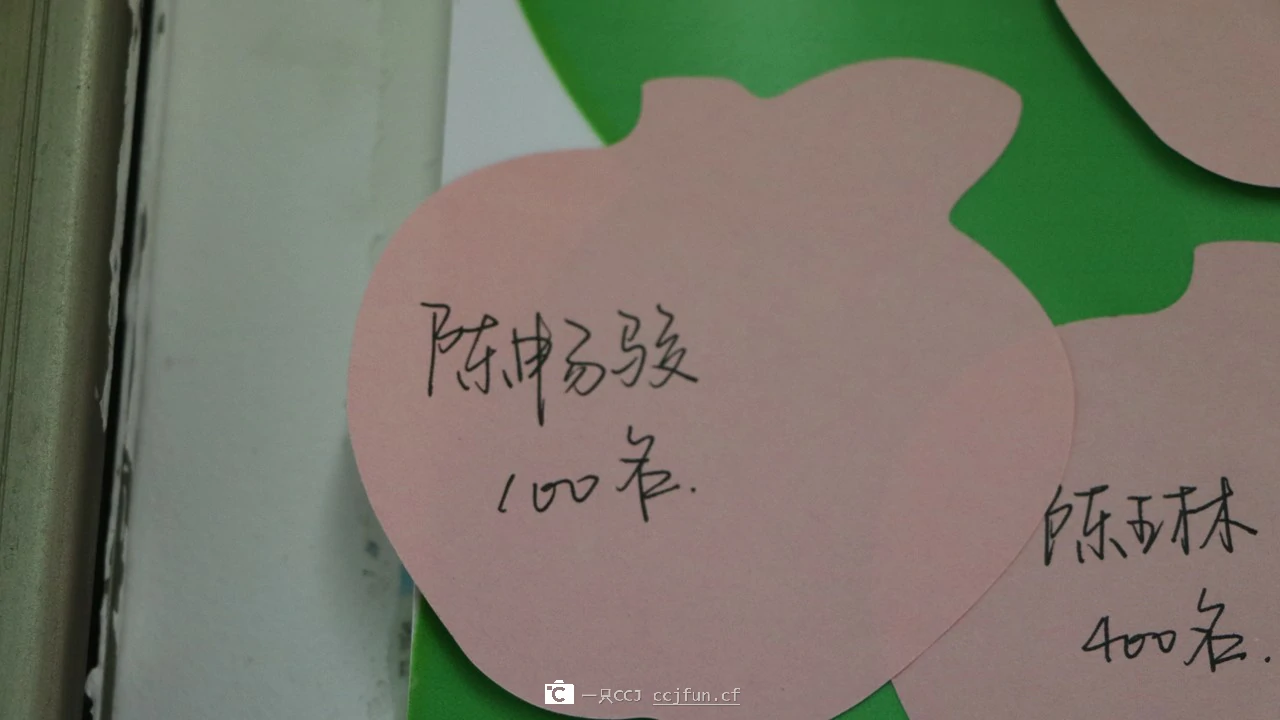 陈畅骏
100名.
陈玉林
400名.
一只CCJ ccjfun.cf